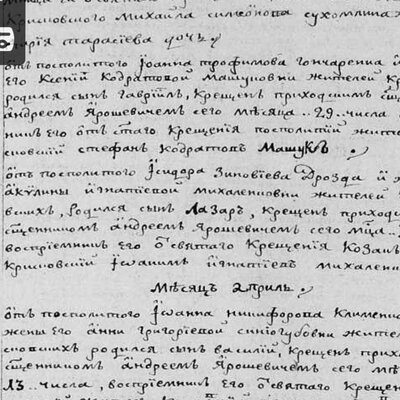 Крисковского Михаила Симеонова Сухомлина ж
рія Тарасіева дочь
Ѿъ посполитого Іоанна Трофимова Гончаренка и
Его Ксеніи Кодратовой Машуковни жителей Кр
родился сынъ Гавріилъ, Крещенъ приходшимъ Сщ
Андреемъ Ярошевичемъ сего мѣсяца 29 числа
никъ Его ѿъ стаго Крещенія посполитій жите
сновскій Стефанъ Кодратовъ Машукъ
Ѿъ посполитого Ісидора Зиновіева Дрозда и ж
Акулины Игнатіевой Михаленковни жителей
вскихъ, родился сынъ Лазаръ, Крещенъ приходс
сщенникомъ Андреемъ Ярошевичемъ сего мца
воспріемникъ Его ѿ святаго Крещенія Козакъ
Крисковскій Іоакимъ Игнатіевъ Михаленк
Мѣсяцъ Априль
Ѿъ посполитого Іоанна Никифорова Клименк
жены Его Анни Григоріевой Синогубовни жите
сновскихъ родился сынъ Василій, Крещенъ прих
сщенникомъ Андреемъ Ярошевичемъ сего мѣ
числа, воспріемникъ Его ѿ святаго Креще